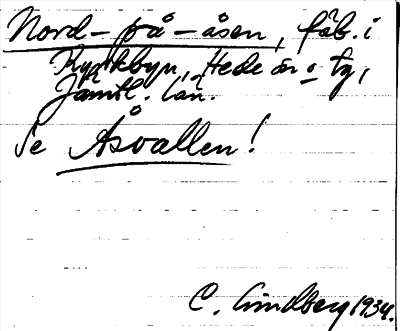 Nord-på-åsen, fäb. i
Kyrkbyn, Hede sn o tg,
Jämtl. län.
Se Åsvallen!
C. Lindberg 1934.